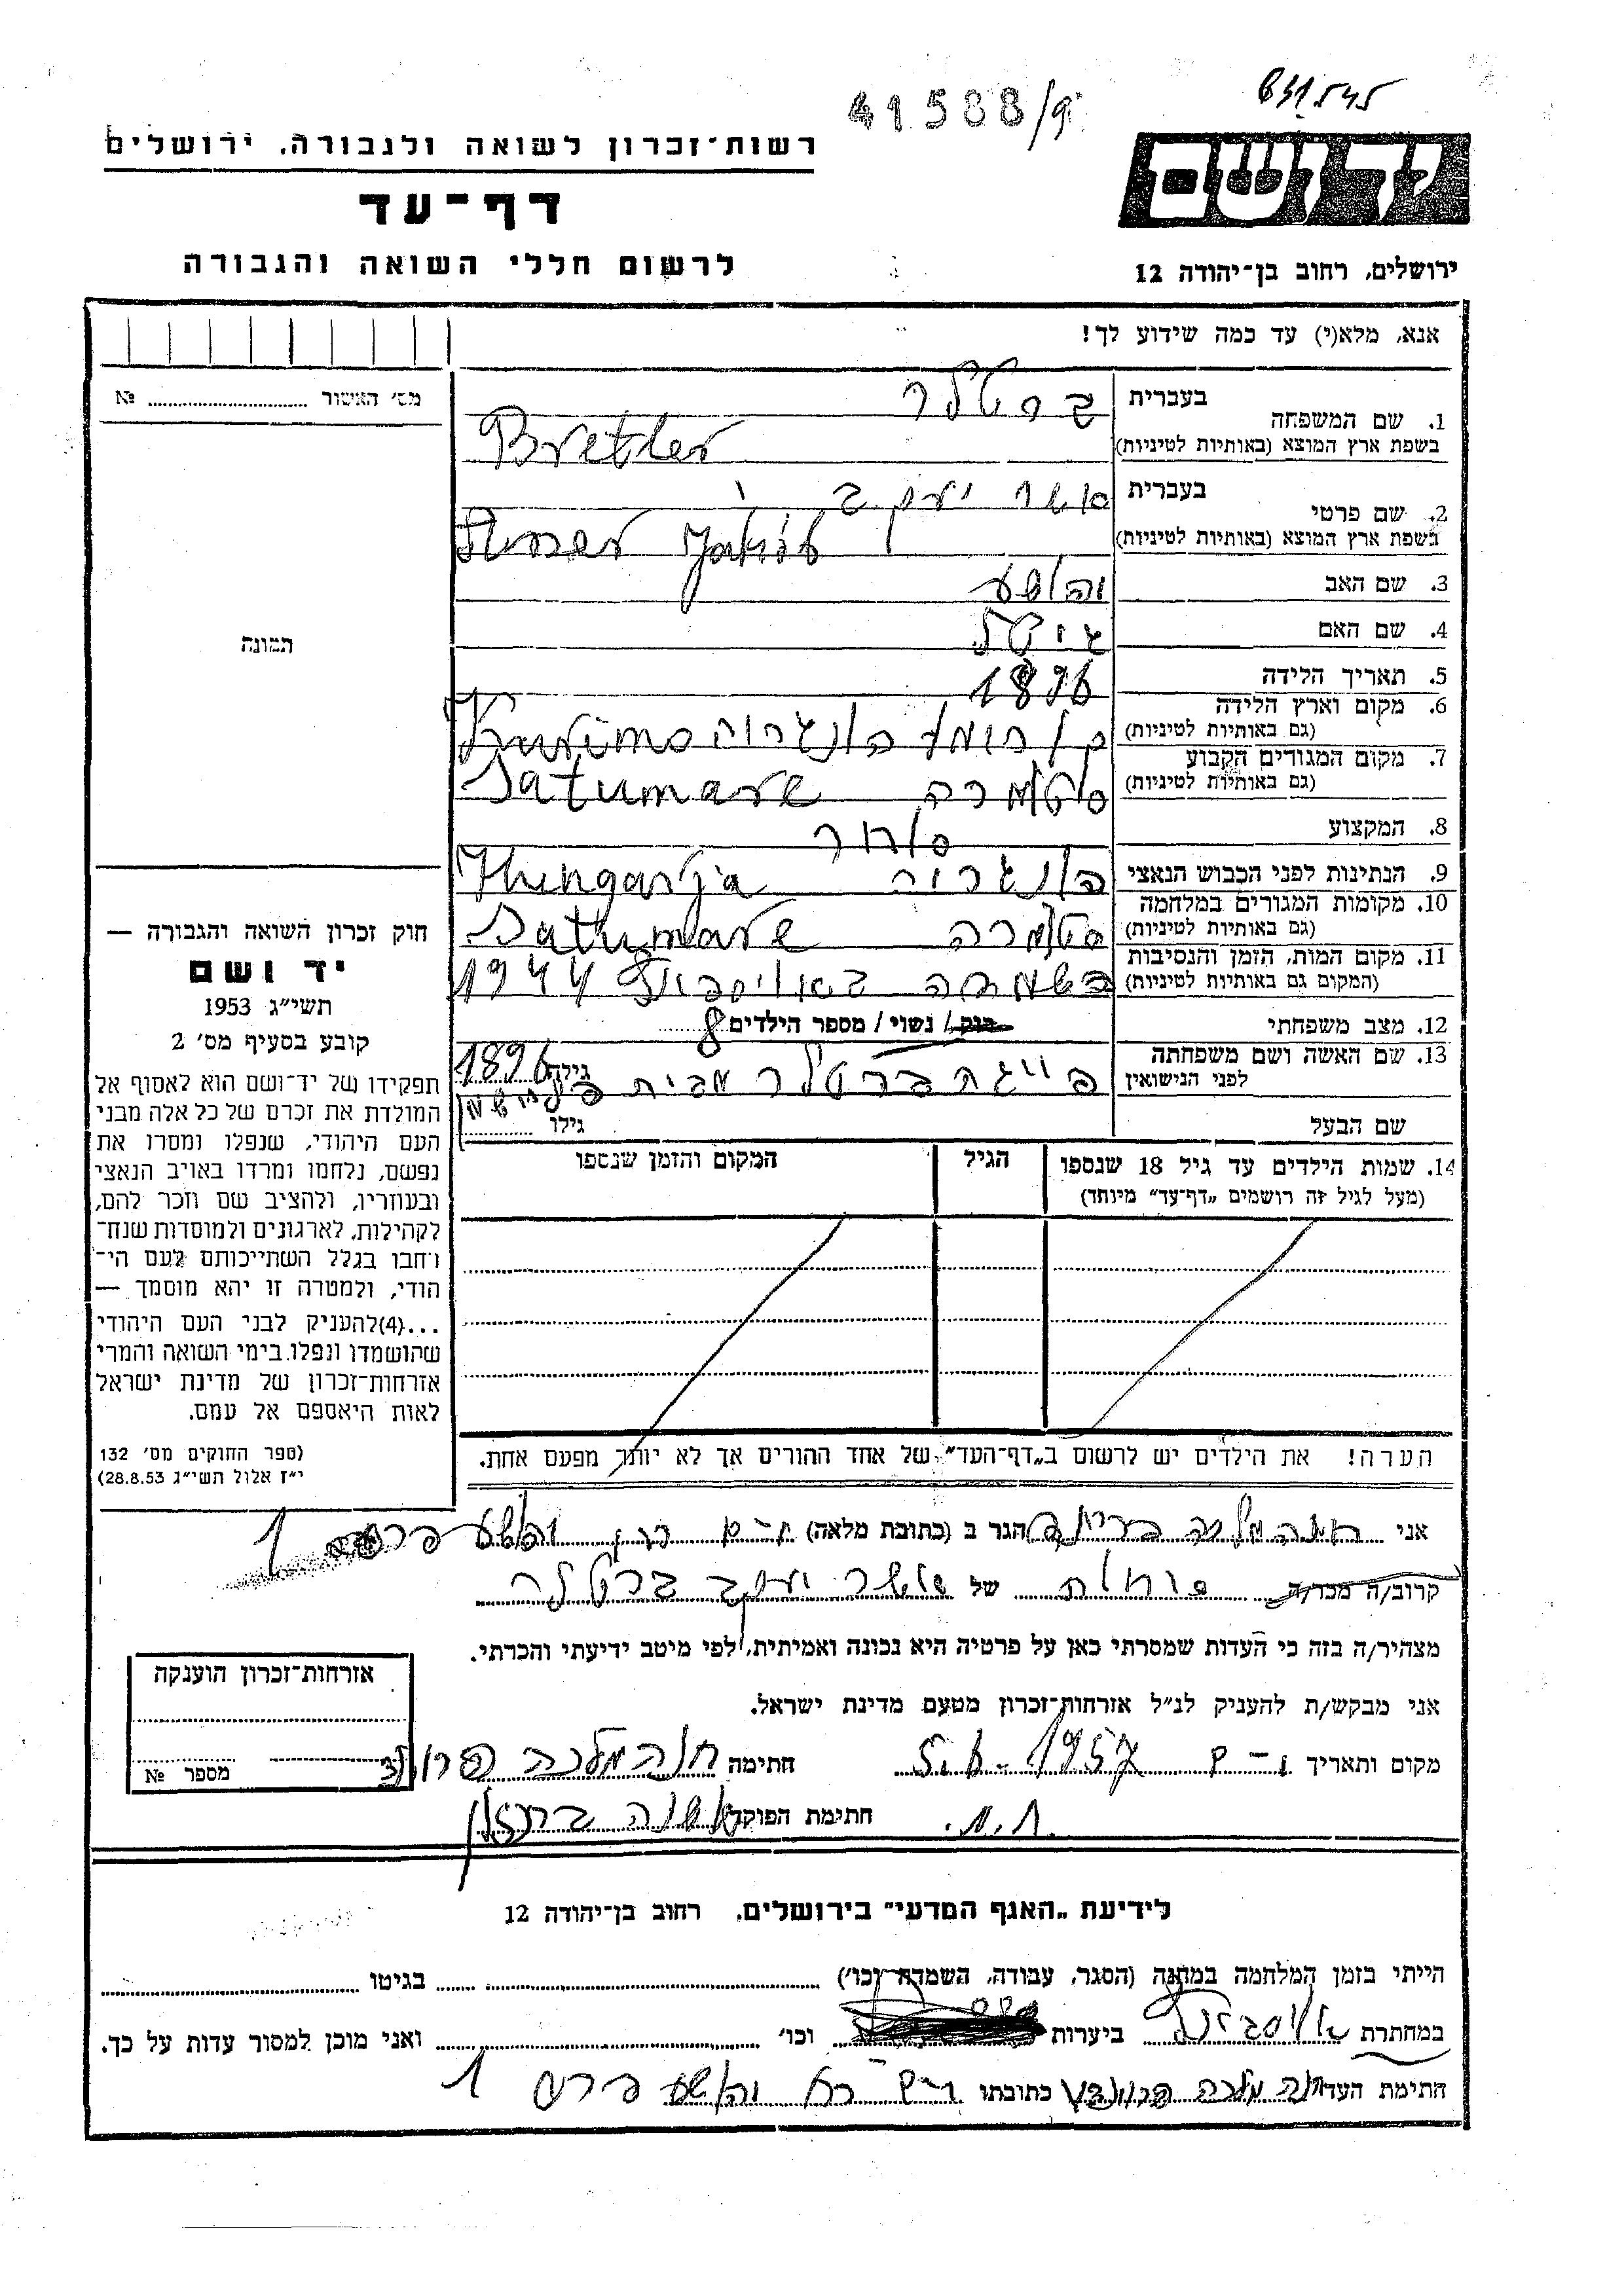 41588/9
רשות־זכרון לשואה ולגבורה, ירושלים
דף־עד
לרשום חללי השואה והגבורה
ירושלים, רחוב בן־יהודה 12
אנא, מלא(י) עד כמה שידוע לך!
מס׳ האשור № 
1. שם המשפחה
בעברית ברטלר
בשפת ארץ המוצא (באותיות לטיניות) Bretler
2. שם פרטי
בעברית אשר יעקב
בשפת ארץ המוצא (באותיות לטיניות) Jakob
3. שם האב יהושע
4. שם האם גיטל
5. תאריך הלידה 1896
6. מקום וארץ הלידה
(גם באותיות לטיניות) הונגריה
7. מקום המגורים הקבוע
(גם באותיות לטיניות) סטמרה Satumare
8. המקצוע סוחר
9. הנתינות לפני הכבוש הנאצי הונגריה Hungarja
10. מקומות המגורים במלחמה
(גם באותיות לטיניות) סטמרה Satumare
11. מקום המות, הזמן והנסיבות
(המקום גם באותיות לטיניות) 1944
12. מצב משפחתי רוק / נשוי / מספר הילדים 8
13. שם האשה ושם משפחתה
לפני הנישואין פייגה ברטלר מבית גילה 1896
שם הבעל גילו
14. שמות הילדים עד גיל 18 שנספו
(מעל לגיל זה רושמים „דף־עד” מיוחד)
הגיל
המקום והזמן שנספו
הערה! את הילדים יש לרשום ב„דף־העד” של אחד ההורים אך לא יותר מפעם אחת.
תמונה
חוק זכרון השואה והגבורה —
יד ושם
תשי״ג 1953
קובע בסעיף מס׳ 2
תפקידו של יד־ושם הוא לאסוף אל
המולדת את זכרם של כל אלה מבני
העם היהודי, שנפלו ומסרו את
נפשם, נלחמו ומרדו באויב הנאצי
ובעוזריו, ולהציב שם וזכר להם,
לקהילות, לארגונים ולמוסדות שנח־
רחבו בגלל השתייכותם לעם הי־
הודי, ולמטרה זו יהא מוסמך —
...(4)להעניק לבני העם היהודי
שהושמדו ונפלו בימי השואה והמרי
אזרחות־זכרון של מדינת ישראל
לאות היאספם אל עמם.
(ספר החוקים מס׳ 132
י״ז אלול תשי״ג 28.8.53)
אני חנה מלכה הגר ב (כתובת מלאה) י־ם יהושע 1
קרוב/ה מכר/ה של אשר יעקב ברטלר
מצהיר/ה בזה כי העדות שמסרתי כאן על פרטיה היא נכונה ואמיתית, לפי מיטב ידיעתי והכרתי.
אני מבקש/ת להעניק לנ״ל אזרחות־זכרון מטעם מדינת ישראל.
מקום ותאריך י־ם 1957 חתימה חנה מלכה
חתימת הפוקד
אזרחות־זכרון הוענקה
מספר №
לידיעת „האגף המדעי” בירושלים, רחוב בן־יהודה 12
הייתי בזמן המלחמה במחנה (הסגר, עבודה, השמדה וכו׳) בגיטו
במחתרת ביערות וכו׳ ואני מוכן למסור עדות על כך.
חתימת העד חנה מלכה כתובתו י־ם יהושע 1